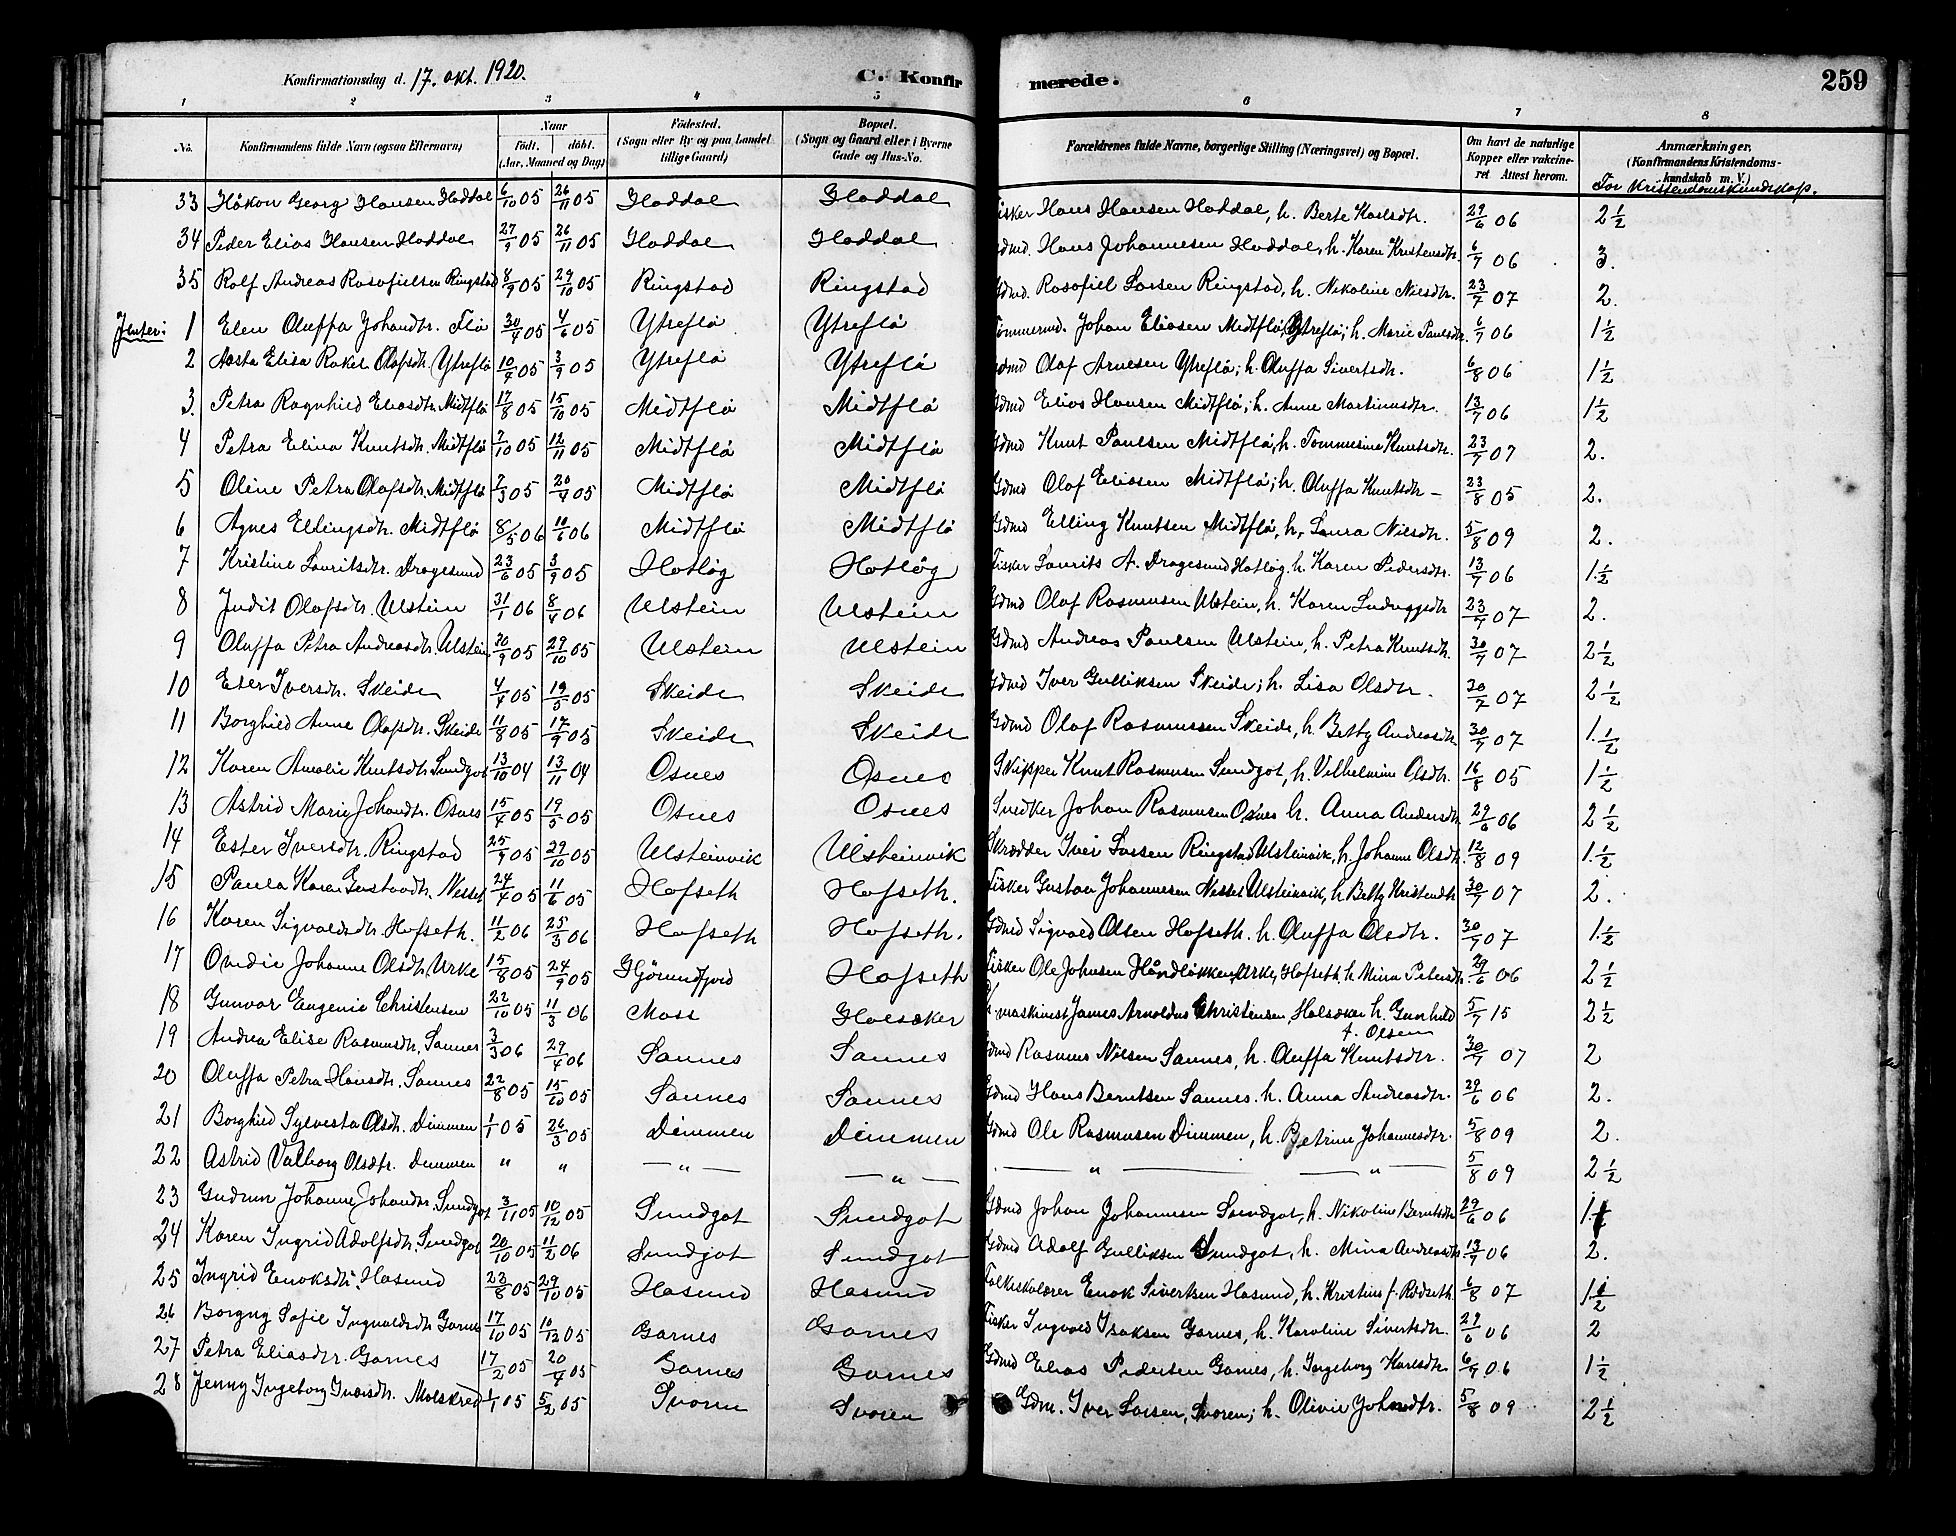 Konfirmationsdag d. 17. okt. 1920.
C. Konfirmerede.
259
1 2 3 4 5 6 7 8
No. Konfirmandens fulde Navn (ogsaa Efternavn) Naar födt. döbt. (Aar, Maaned og Dag) Födested. (Sogn eller By og paa Landet tillige Gaard) Bopæl. (Sogn og Gaard eller i Byerne Gade og Hus-No. Forældrenes fulde Navne, borgerlige Stilling (Næringsvei) og Bopæl. Om havt de naturlige Kopper eller vaccineret Attest herom. Anmærkninger, (Konfirmandens Kristendomskundskab m. V.)
For Kristendomskundskap.
33 Håkon Georg Hansen Haddal 6/10 05 26/11 05 Haddal Haddal Fisker Hans Hansen Haddal, h. Berte Karlsdtr. 29/6 06 2 1/2
34 Peder Elias Hansen Haddal 27/9 05 26/11 05 Haddal Haddal Gdmd. Hans Johannesen Haddal, h. Karen Kristensdtr. 6/7 06 3.
35 Rolf Andreas Rasofielsen Ringstad 8/9 05 29/10 05 Ringstad Ringstad Gdmd. Rasofiel Larsen Ringstad, h. Nikoline Nilsdtr. 23/7 07 2.
Jenter:
1 Elen Oluffa Johandtr. Flø 30/4 05 4/6 05 Ytreflø Ytreflø Tømmermd. Johan Eliasen Midtflø, Ytreflø; h. Marie Paulsdtr. 6/7 06 1 1/2
2 Aasta Elisa Rakel Olafsdtr. Ytreflø 10/4 05 3/9 05 Ytreflø Ytreflø Gdmd Olaf Arnesen Ytreflø; h. Oluffa Sivertsdtr. 6/8 06 1 1/2
3. Petra Ragnhild Eliasdtr. Midtflø 17/8 05 15/10 05 Midtflø Midtflø Gdmd Elias Hansen Midtflø; h. Anne Martinusdtr. 13/7 06 1 1/2
4 Petra Elina Knutsdtr. Midtflø 7/10 05 12/11 05 Midtflø Midtflø Gdmd Knut Paulsen Midtflø, h. Tommesine Knutsdtr. 23/7 07 2.
5 Oline Petra Olafsdtr. Midtflø 7/3 05 20/4 05 Midtflø Midtflø Gdmd Olaf Eliasen Midtflø; h. Oluffa Knutsdtr - 23/8 05 2.
6 Agnes Ellingsdtr. Midtflø 8/5 06 10/6 06 Midtflø Midtflø Gdmd Elling Knutsen Midtflø, h. Laura Nilsdtr. 5/8 09 2.
7 Kristine Lauritsdtr. Dragesund 23/6 05 3/9 05 Hatløg Hatløg Fisker Laurits A. Dragesund Hatløg, h. Karen Pedersdtr. 13/7 06 1. 1/2
8 Judit Olafsdtr. Ulstein 31/1 06 8/4 06 Ulstein Ulstein Gdmd Olaf Rasmussen Ulstein, h. Karen Ludvigsdtr 23/7 07 2.
9 Oluffa Petra Andreasdtr. Ulstein 20/9 05 29/10 05 Ulstein Ulstein Gdmd Andreas Paulsen Ulstein, h. Petra Knutsdtr. 30/7 07 2 1/2
10 Ester Iversdtr. Skeide 4/4 05 19/5 05 Skeide Skeide Gdmd Iver Gulliksen Skeide; h. Lisa Olsdtr. 30/7 07 2 1/2
11 Borghild Anne Olafsdtr. Skeide 11/8 05 17/9 05 Skeide Skeide Gdmd Olaf Rasmussen Skeide, h. Betty Andreasdtr. 30/7 07 1. 1/2
12 Karen Amalie Knutsdtr. Sundgot 13/10 04 13/11 04 Osnes Osnes Skipper Knut Rasmussen Sundgot, h. Vilhelmine Olsdtr. 16/8 05 1 1/2
13 Astrid Marie Johandtr. Osnes 15/4 05 19/5 05 Osnes Osnes Snedker Johan Rasmussen Osnes h. Anna Andersdtr. 29/6 06 2 1/2
14 Ester Iversdtr. Ringstad 25/9 05 29/10 05 Ulsteinvik Ulsteinvik Skrædder Iver Larsen Ringstad Ulsteinvik, h. Johanne Olsdtr. 12/8 09 1. 1/2
15 Paula Karen Gustavdtr. Nesset 24/4 05 11/6 05 Hofseth Hofseth. Fisker Gustav Johannesen Nesset Ulsteinvik, h. Betty Kristendtr 30/7 07 2.
16 Karen Sigvaldsdtr. Hofseth. 11/2 06 25/3 06 Hofseth Hofseth. Gdmd Sigvald Olsen Hofseth. h. Oluffa Olsdtr. 30/7 07 1. 1/2
17 Ovidie Johanne Olsdtr. Urke 15/8 05 24/9 05 Hjørundfjord Hofseth Fisker Ole Johnsen Håndløkken, Urke, Hofseth, h. Mina Petersdtr. 29/6 06 2 1/2
18 Gunvor Eugenie Christensen 22/10 05 11/3 06 Moss Holsæker maskinist James Arnoldus Christensen, Holsæker h. Gunhild f. Olsen 5/7 15 2 1/2
19 Andrea Elise Rasmusdtr. Sannes 3/3 06 29/4 06 Sannes Sannes Gdmd Rasmus Nilsen Sannes, h. Oluffa Knutsdtr. 30/7 07 2
20 Oluffa Petra Hansdtr. Sannes 22/8 05 15/10 05 Sannes Sannes Gdmd Hans Berntsen Sannes. h. Anna Andreasdtr. 29/6 06 2.
21 Borghild Sylvesta Olsdtr. Dimmen 1/1 05 26/3 05 Dimmen Dimmen Gdmd Ole Rasmusen Dimmen, h. Petrine Johannesdtr. 5/8 09 2.
22 Astrid Valborg Olsdtr. Dimmen " " — " — — " — — " — — " — 5/8 09 2 1/2
23 Gudrun Johanne Johansdtr. Sundgot 3/11 05 10/12 05 Sundgot Sundgot Gdmd Johan Johannesen Sundgot, h. Nikoline Berntsdtr 29/6 06 1.
24 Karen Ingrid Adolfsdtr. Sundgot 20/10 05 11/2 06 Sundgot Sundgot Gdmd Adolf Gulliksen Sundgot, h. Mina Andreasdtr. 13/7 06 2.
25 Ingrid Enoksdtr. Hasund 23/8 05 29/10 05 Hasund Hasund Folkeskolærer Enok Sivertsen Hasund, h. Kristine f. Rødseth. 6/8 07 1 1/2
26 Borgny Sofie Ingvaldsdtr Garnes 17/10 05 10/12 05 Garnes Garnes Fisker Ingvald Isaksen Garnes, h. Karoline Sivertsdtr. 29/6 06 2
27 Petra Eliasdtr. Garnes 17/2 05 20/4 05 Garnes Garnes Gdmd Elias Pedersen Garnes, h. Ingeborg Karlsdtr. 6/7 06 1 1/2
28 Jenny Ingeborg Iversdtr. Molskred 1/1 05 5/2 05 Svoren Svoren Gdm. Iver Larsen, Svoren; h. Olivie Johndtr. 5/8 09 2 1/2